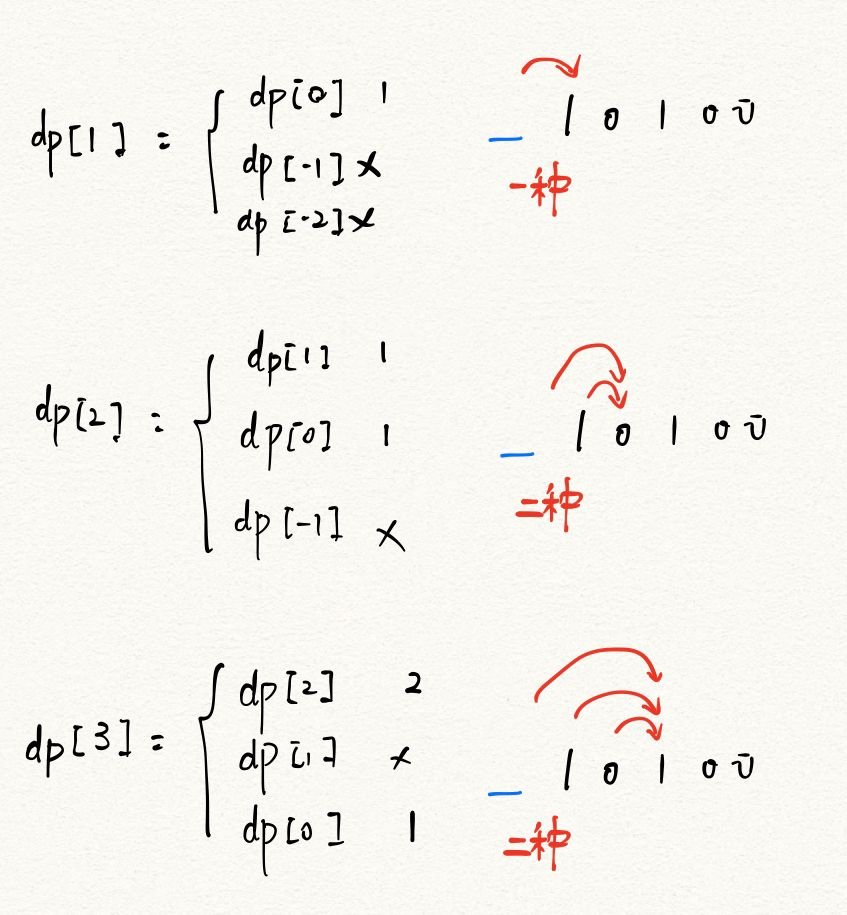 dp[1] = { dp[0] 1
dp[-1] x
dp[-2] x
1 0 1 0 0
一种
dp[2] = { dp[1] 1
dp[0] 1
dp[-1] x
1 0 1 0 0
二种
dp[3] = { dp[2] 2
dp[1] x
dp[0] 1
1 0 1 0 0
二种